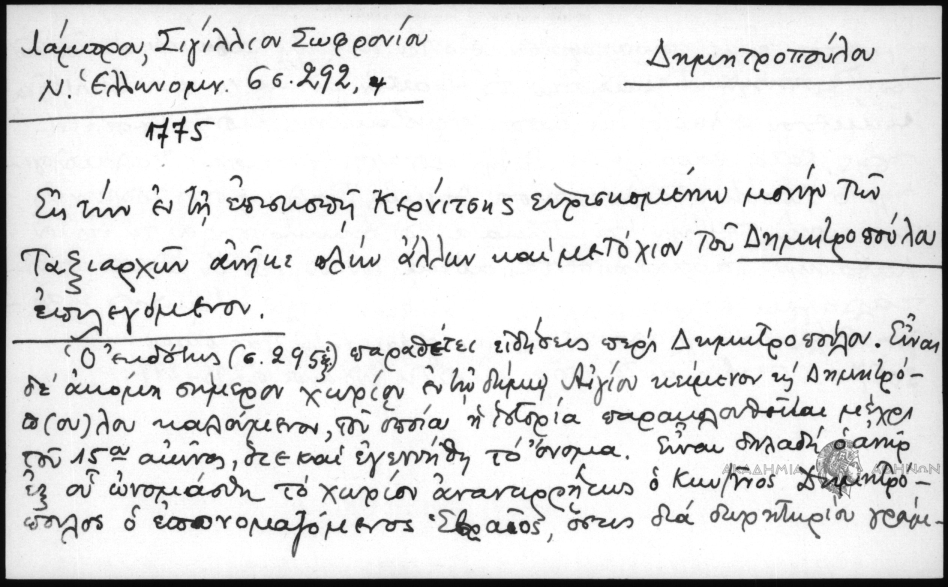 Λάμπρου, Σιγίλλιον Σωφρονίου
Δημητροπούλου
Ν. Ἑλληνομν. 6 σ. 292, 4
1775
Εἰς τὴν ἐν τῇ ἐπισκοπῇ Κερνίτσης εὑρισκομένην μονὴν τῶν
Ταξιαρχῶν ἀνῆκε πλὴν ἄλλων καὶ μετόχιον τοῦ Δημητροπούλου
ἐπιλεγόμενον.
Ὁ ἐκδότης (σ. 295 ἑξ) παραθέτει εἰδήσεις περὶ Δημητροπούλου. Εἶναι
δὲ ἀκόμη σήμερον χωρίον ἐν τῷ δήμῳ Αἰγίου κείμενον Δημητρό-
π(ου)λου καλούμενον, τοῦ ὁποίου ἡ ἱστορία παρακολουθεῖται μέχρι
τοῦ 15ου αἰῶνος, ὅτε καὶ ἐγεννήθη τὸ ὄνομα. Εἶναι δηλαδὴ ὁ ἀνὴρ
ἐξ οὗ ὠνομάσθη τὸ χωρίον ἀναντιρρήτως ὁ Κων/νος Δημητρό-
πουλος ὁ ἐπονομαζόμενος ὅστις διὰ δωρητηρίου γράμ-
ΑΚΑΔΗΜΙΑ ΑΘΗΝΩΝ